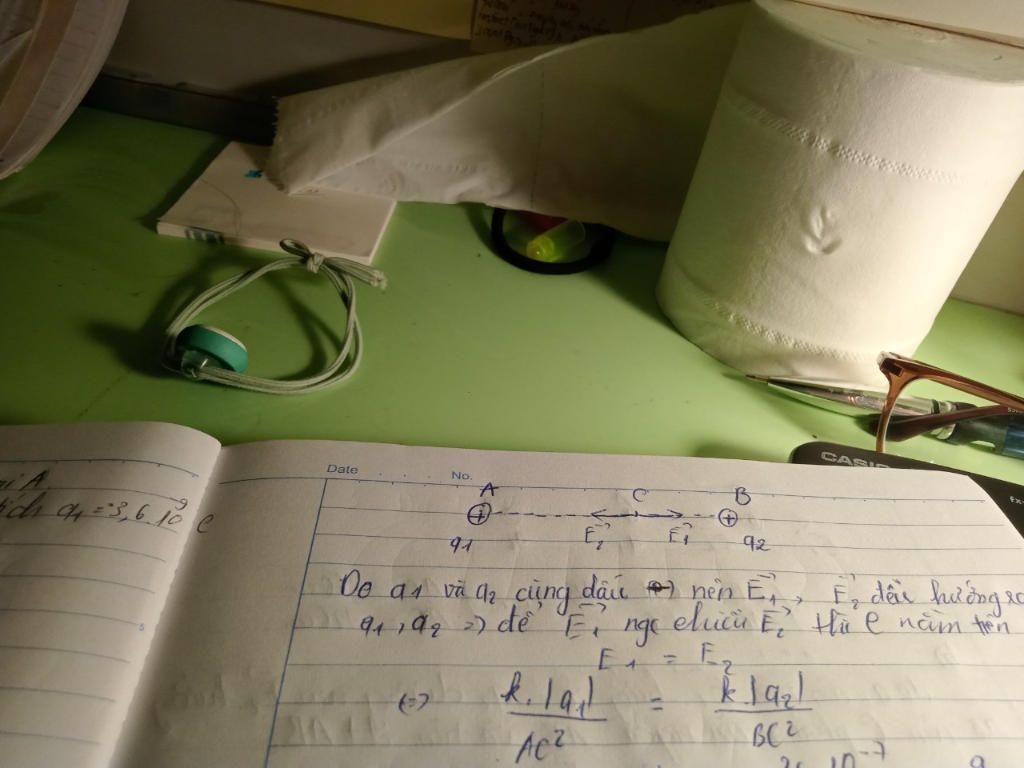 q₁ = 3,6.10⁻⁹ C
Date No.
A C B
E₂ E₁
q1 q2
Do q1 và q2 cùng dấu nên E₁, E₂ đều hướng
q1, q2 => để E₁ ngc chiều E₂ thì C nằm trên
E1 = E₂
<=> k.|q₁| / AC² = k.|q₂| / BC²
10⁻⁷ 9
CASIO
fx-